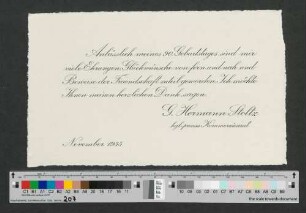 Anlässlich meines 90. Geburtstages sind mir
viele Ehrungen, Glückwünsche von fern und nah und
Beweise der Freundschaft zuteil geworden. Ich möchte
Ihnen meinen herzlichen Dank sagen.
G. Hermann Stoltz
kgl. preuss. Kommerzienrat
November 1935
207